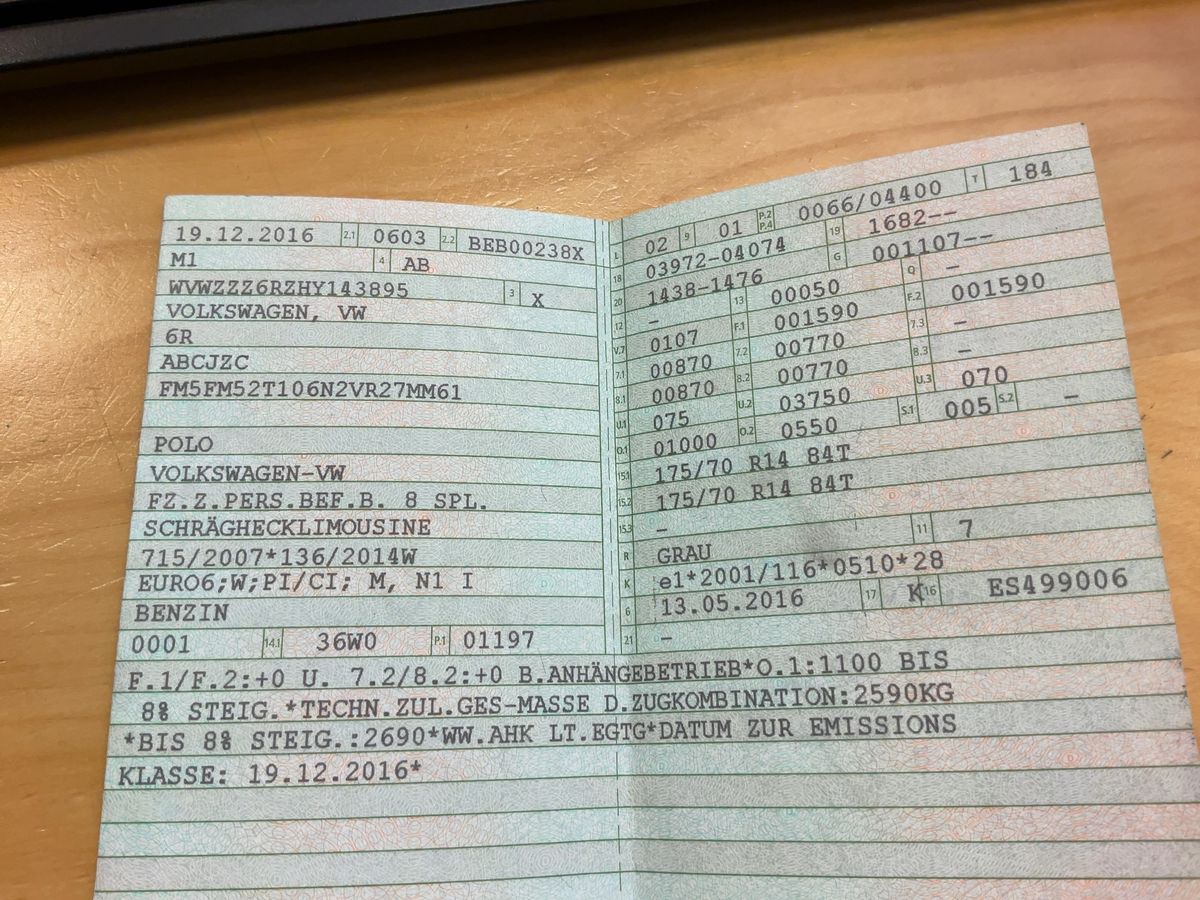 19.12.2016 2.1 0603 2.2 BEB00238X
M1 4 AB
WVWZZZ6RZHY143895 3 X
VOLKSWAGEN, VW
6R
ABCJZC
FM5FM52T106N2VR27MM61
POLO
VOLKSWAGEN-VW
FZ.Z.PERS.BEF.B. 8 SPL.
SCHRÄGHECKLIMOUSINE
715/2007*136/2014W
EURO6;W;PI/CI; M, N1 I
BENZIN
0001 14.1 36W0 P.1 01197
L 02 9 01 P.2 P.4 0066/04400 T 184
18 03972-04074 19 1682--
20 1438-1476 G 001107--
12 - 13 00050 Q -
V.7 0107 F.1 001590 F.2 001590
7.1 00870 7.2 00770 7.3 -
8.1 00870 8.2 00770 8.3 -
U.1 075 U.2 03750 U.3 070
O.1 01000 O.2 0550 S.1 005 S.2 -
15.1 175/70 R14 84T
15.2 175/70 R14 84T
15.3 -
R GRAU 11 7
K e1*2001/116*0510*28
6 13.05.2016 17 K 16 ES499006
21 -
F.1/F.2:+0 U. 7.2/8.2:+0 B.ANHÄNGEBETRIEB*O.1:1100 BIS
8% STEIG.*TECHN.ZUL.GES-MASSE D.ZUGKOMBINATION:2590KG
*BIS 8% STEIG.:2690*WW.AHK LT.EGTG*DATUM ZUR EMISSIONS
KLASSE: 19.12.2016*